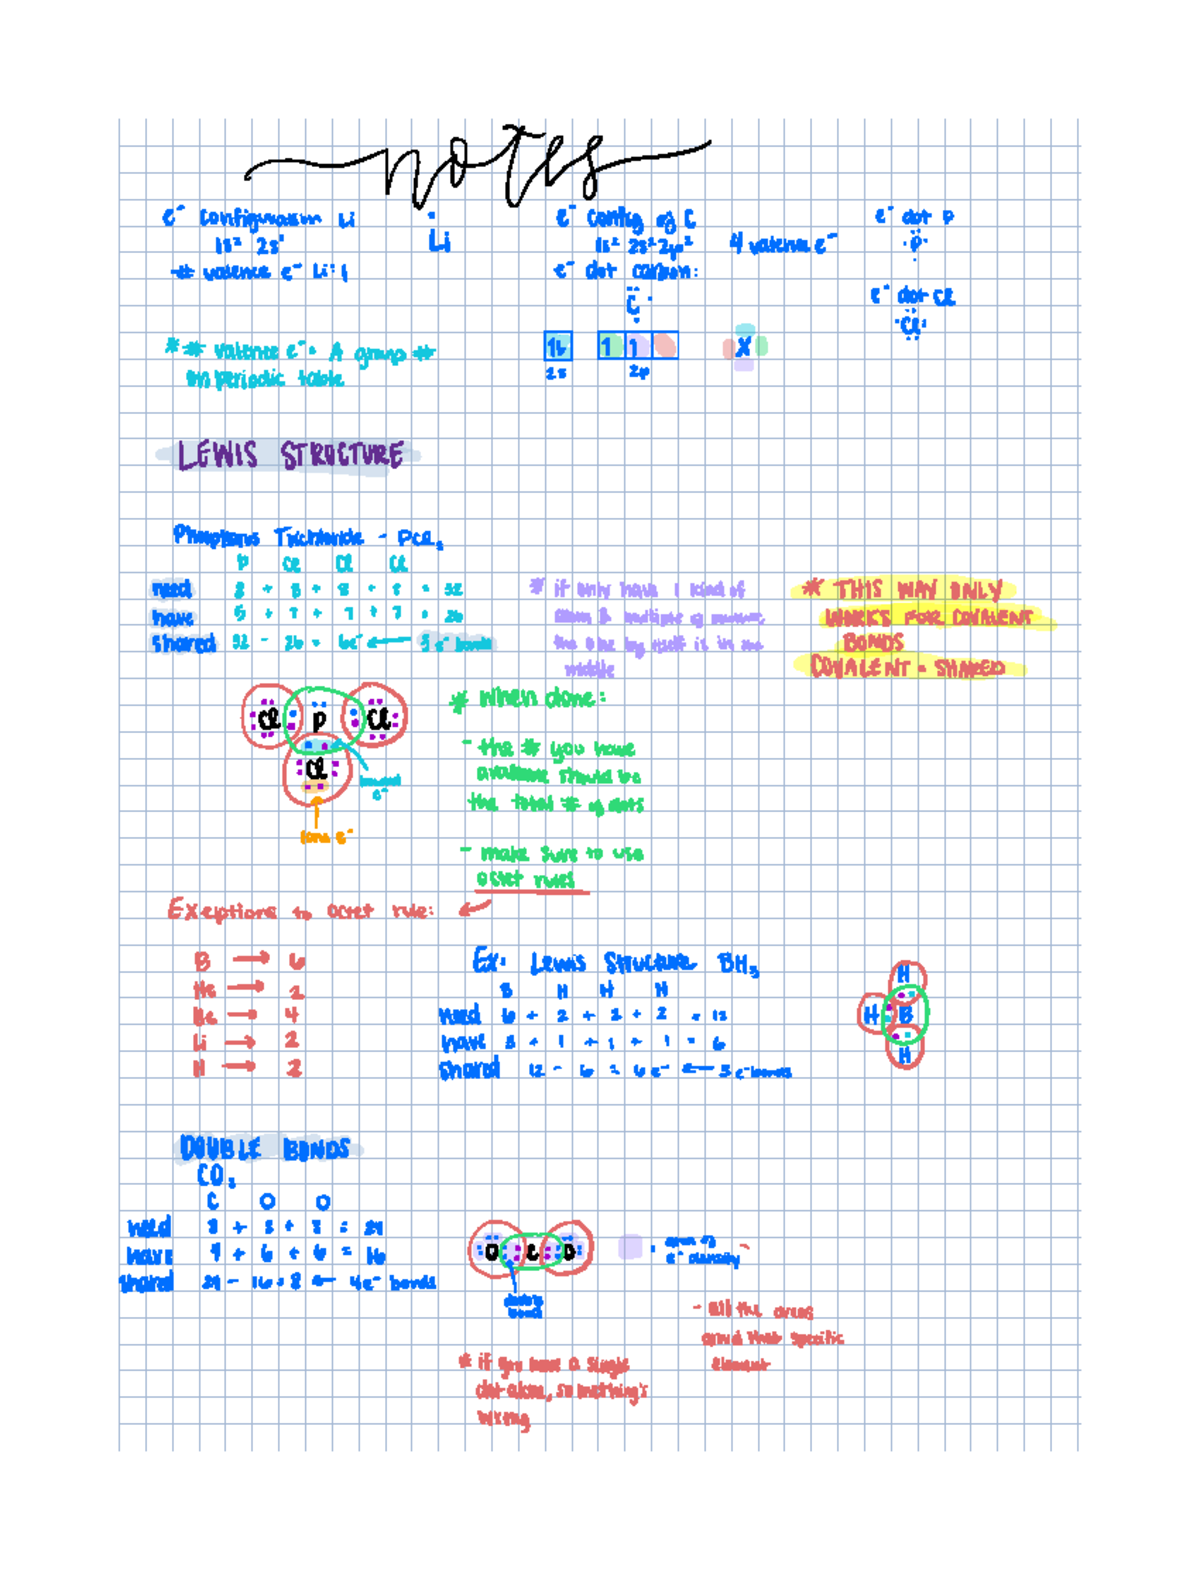 notes
e⁻ configuration Li
1s² 2s¹
# valence e⁻ Li: 1
Li
e⁻ config of C
1s² 2s² 2p²
4 valence e⁻
e⁻ dot carbon:
C
e⁻ dot P
P
e⁻ dot Cl
Cl
** valence e⁻ = A group #
on periodic table
1L 1 1
2s 2p
X
LEWIS STRUCTURE
Phosphorus Trichloride - PCl₃
P Cl Cl Cl
need 8 + 8 + 8 + 8 = 32
have 5 + 7 + 7 + 7 = 26
shared 32 - 26 = 6e⁻ ← 3 e⁻ bonds
* if only have 1 kind of
atom & multiple of another,
the one by itself is in the
middle
* THIS WAY ONLY
WORKS FOR COVALENT
BONDS
COVALENT = SHARED
Cl P Cl
Cl
bonded
e⁻
lone e⁻
* When done:
- the # you have
available should be
the total # of dots
- make sure to use
octet rules
Exeptions to octet rule:
B → 6
He → 2
Be → 4
Li → 2
H → 2
Ex: Lewis Structure BH₃
B H H H
need 6 + 2 + 2 + 2 = 12
have 3 + 1 + 1 + 1 = 6
shared 12 - 6 = 6e⁻ ← 3 e⁻ bonds
H
H B
H
DOUBLE BONDS
CO₂
C O O
need 8 + 8 + 8 = 24
have 4 + 6 + 6 = 16
shared 24 - 16 = 8 ← 4e⁻ bonds
O C O
double
bond
= area of
e⁻ density
- all the areas
around that specific
element
* if you have a single
dot alone, something's
wrong